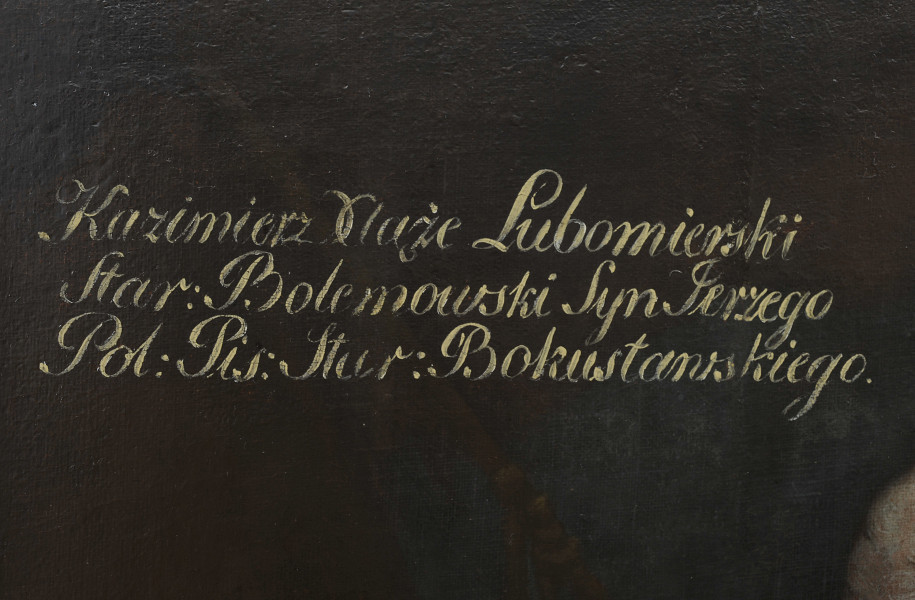 Kazimierz Xiąże Lubomierski
Star: Bolemowski Syn Jerzego
Pol: Pis: Star: Bokustawskiego.